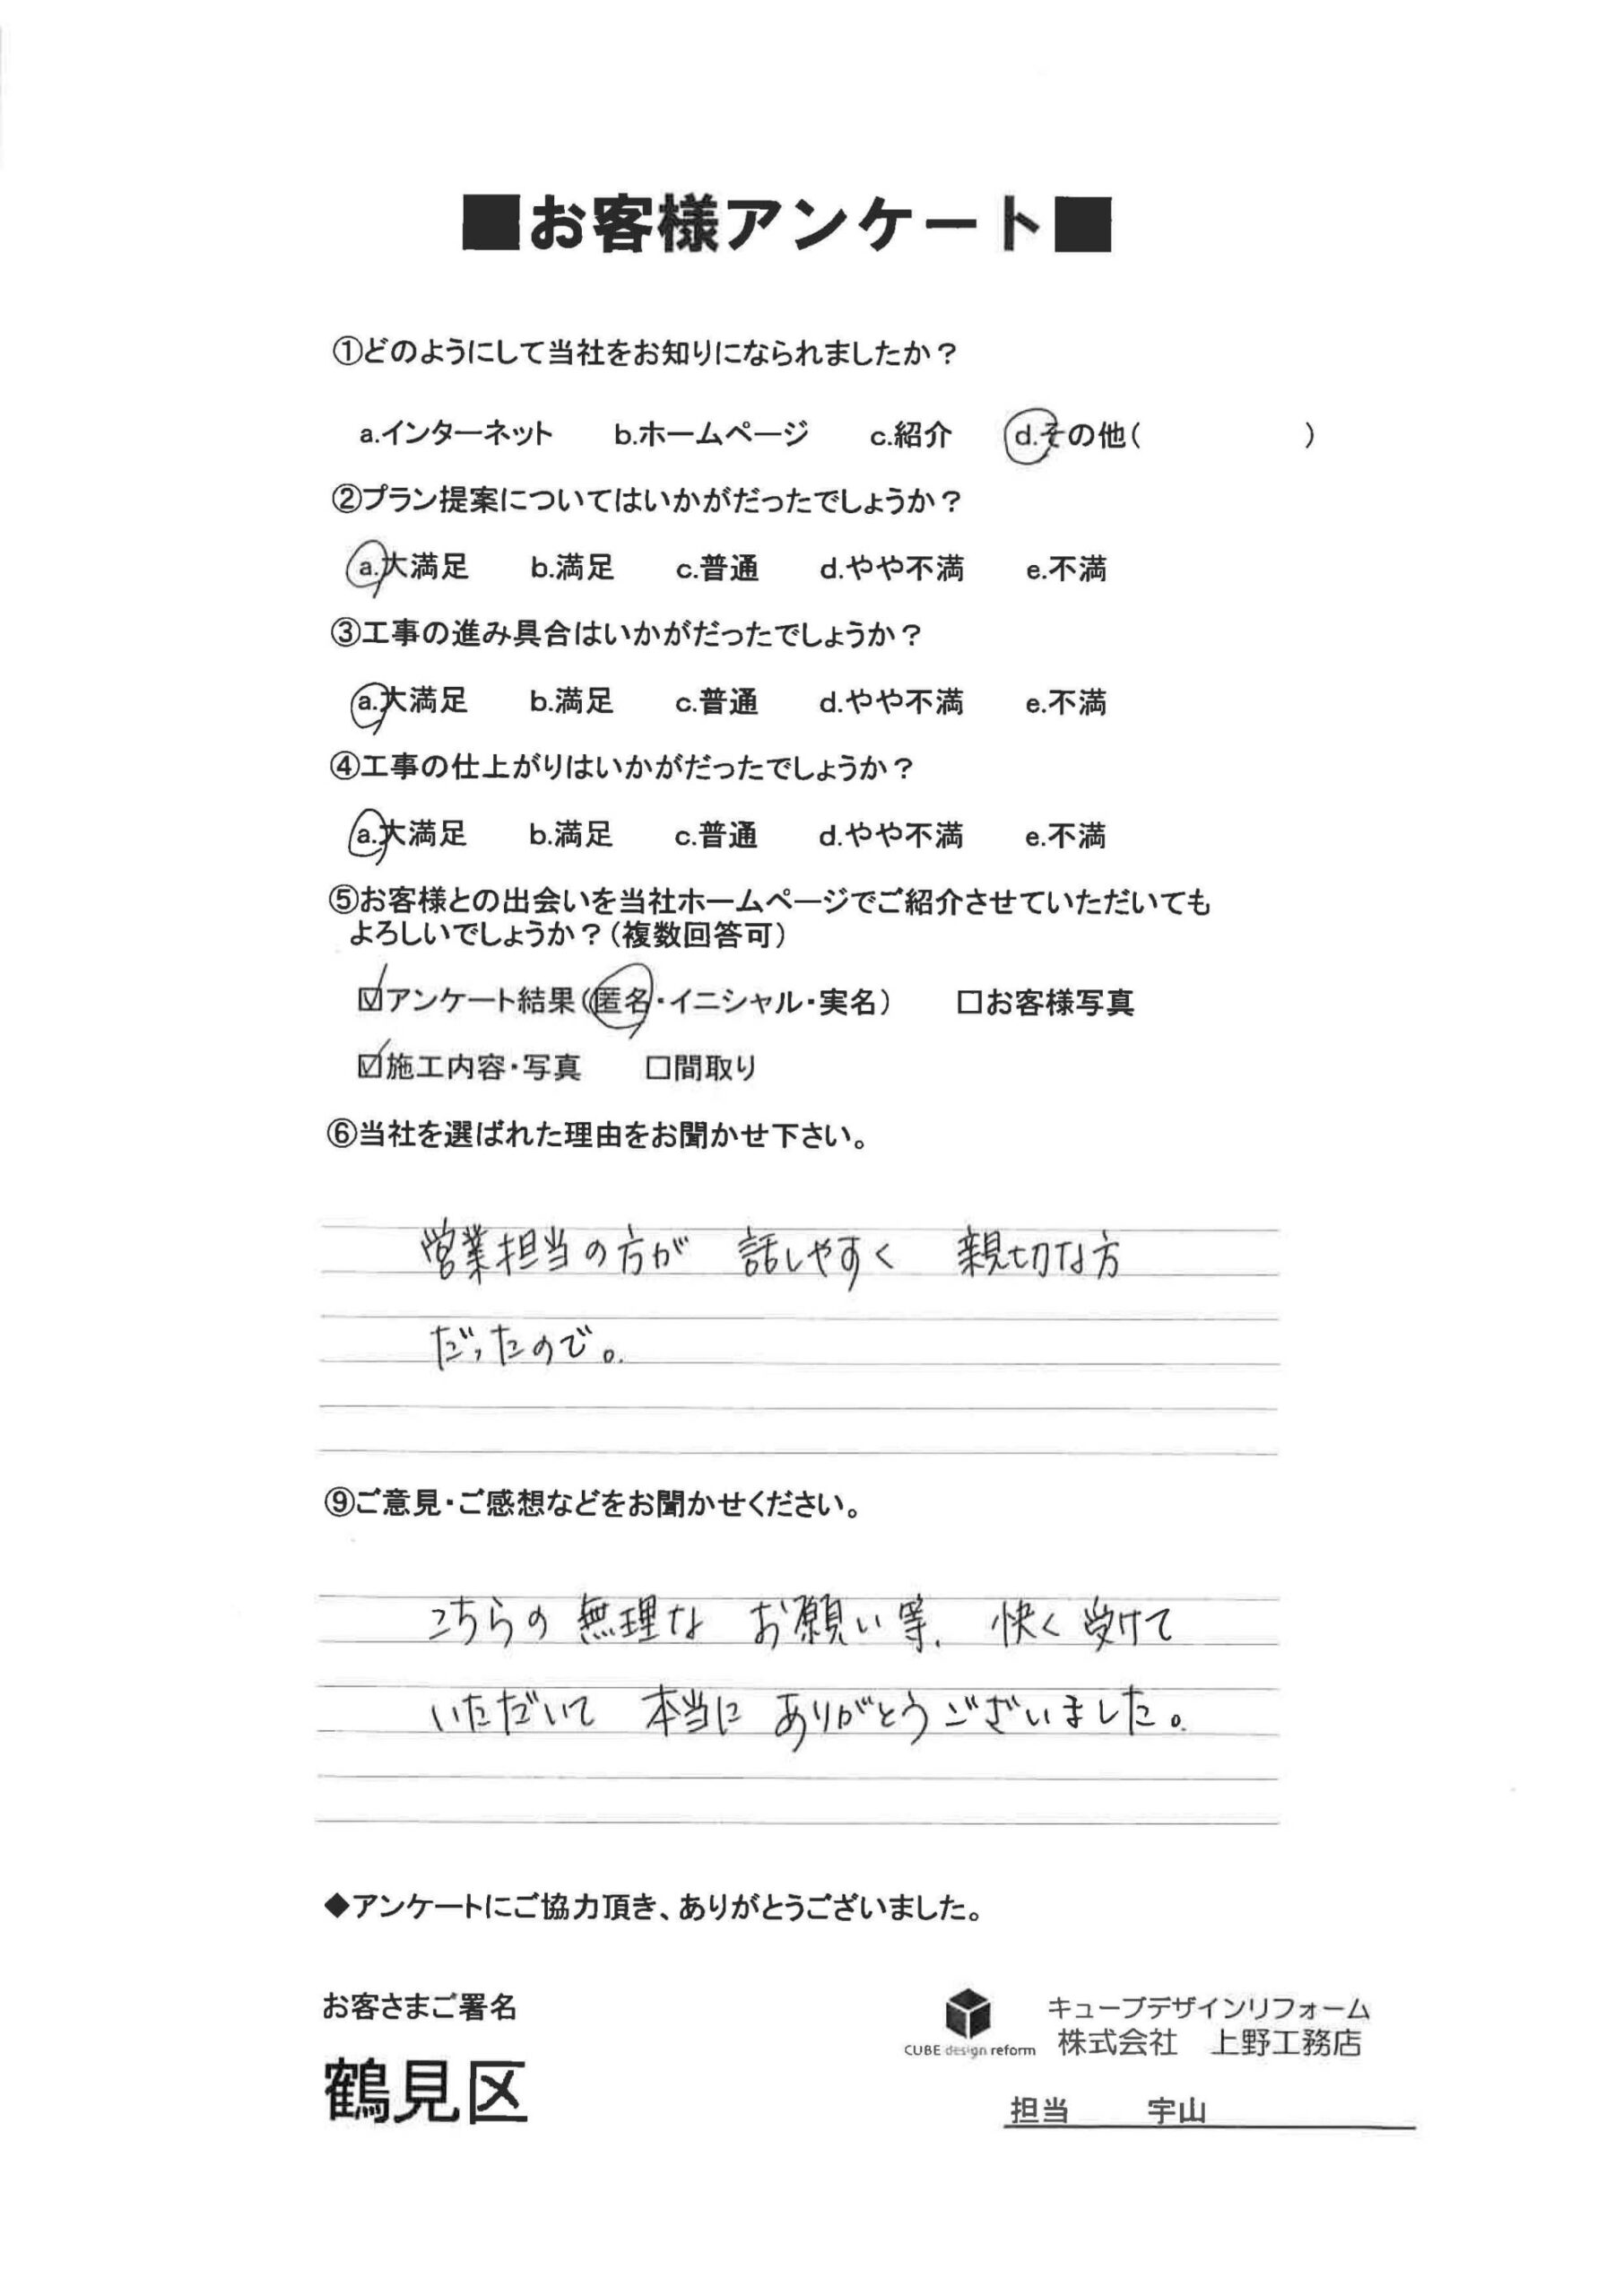 ■お客様アンケート■
①どのようにして当社をお知りになられましたか？
a.インターネット　b.ホームページ　c.紹介　d.その他(　　　　　)
②プラン提案についてはいかがだったでしょうか？
a.大満足　b.満足　c.普通　d.やや不満　e.不満
③工事の進み具合はいかがだったでしょうか？
a.大満足　b.満足　c.普通　d.やや不満　e.不満
④工事の仕上がりはいかがだったでしょうか？
a.大満足　b.満足　c.普通　d.やや不満　e.不満
⑤お客様との出会いを当社ホームページでご紹介させていただいても
よろしいでしょうか？(複数回答可)
☑アンケート結果(匿名・イニシャル・実名)　□お客様写真
☑施工内容・写真　□間取り
⑥当社を選ばれた理由をお聞かせ下さい。
営業担当の方が　話しやすく　親切な方
だったので。
⑨ご意見・ご感想などをお聞かせください。
こちらの無理な　お願い等、快く受けて
いただいて　本当に　ありがとうございました。
◆アンケートにご協力頂き、ありがとうございました。
お客さまご署名
鶴見区
CUBE design reform
キューブデザインリフォーム
株式会社　上野工務店
担当　宇山